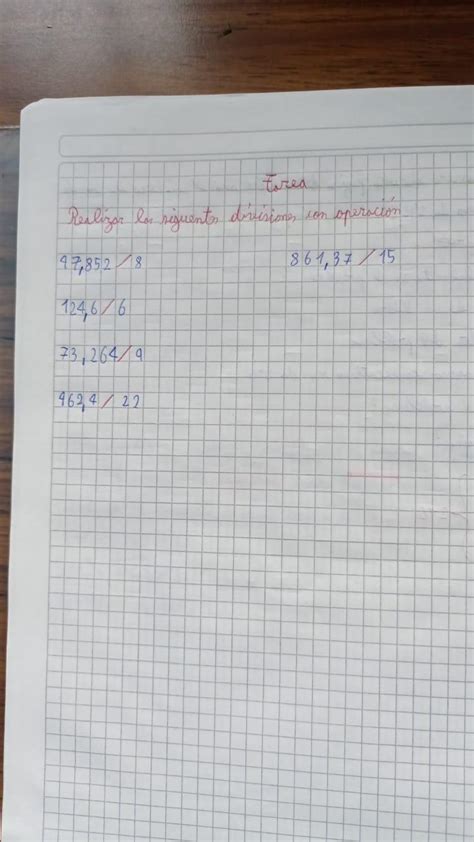 Tarea
Realizar las siguientes divisiones con operación.
47,852 / 8 861,37 / 15
124,6 / 6
73,264 / 9
462,4 / 22